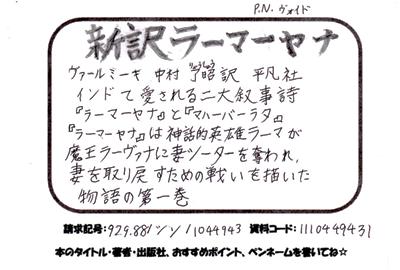 P.N. ヴォイド
新訳ラーマーヤナ
ヴァールミーキ 中村 了昭訳 平凡社
インドで愛される二大叙事詩
『ラーマーヤナ』と『マハーバーラタ』
『ラーマーヤナ』は神話的英雄ラーマが
魔王ラーヴァナに妻シーターを奪われ、
妻を取り戻すための戦いを描いた
物語の第一巻
請求記号:929.881/シン/1044943 資料コード:1110449431
本のタイトル・著者・出版社、おすすめポイント、ペンネームを書いてね☆